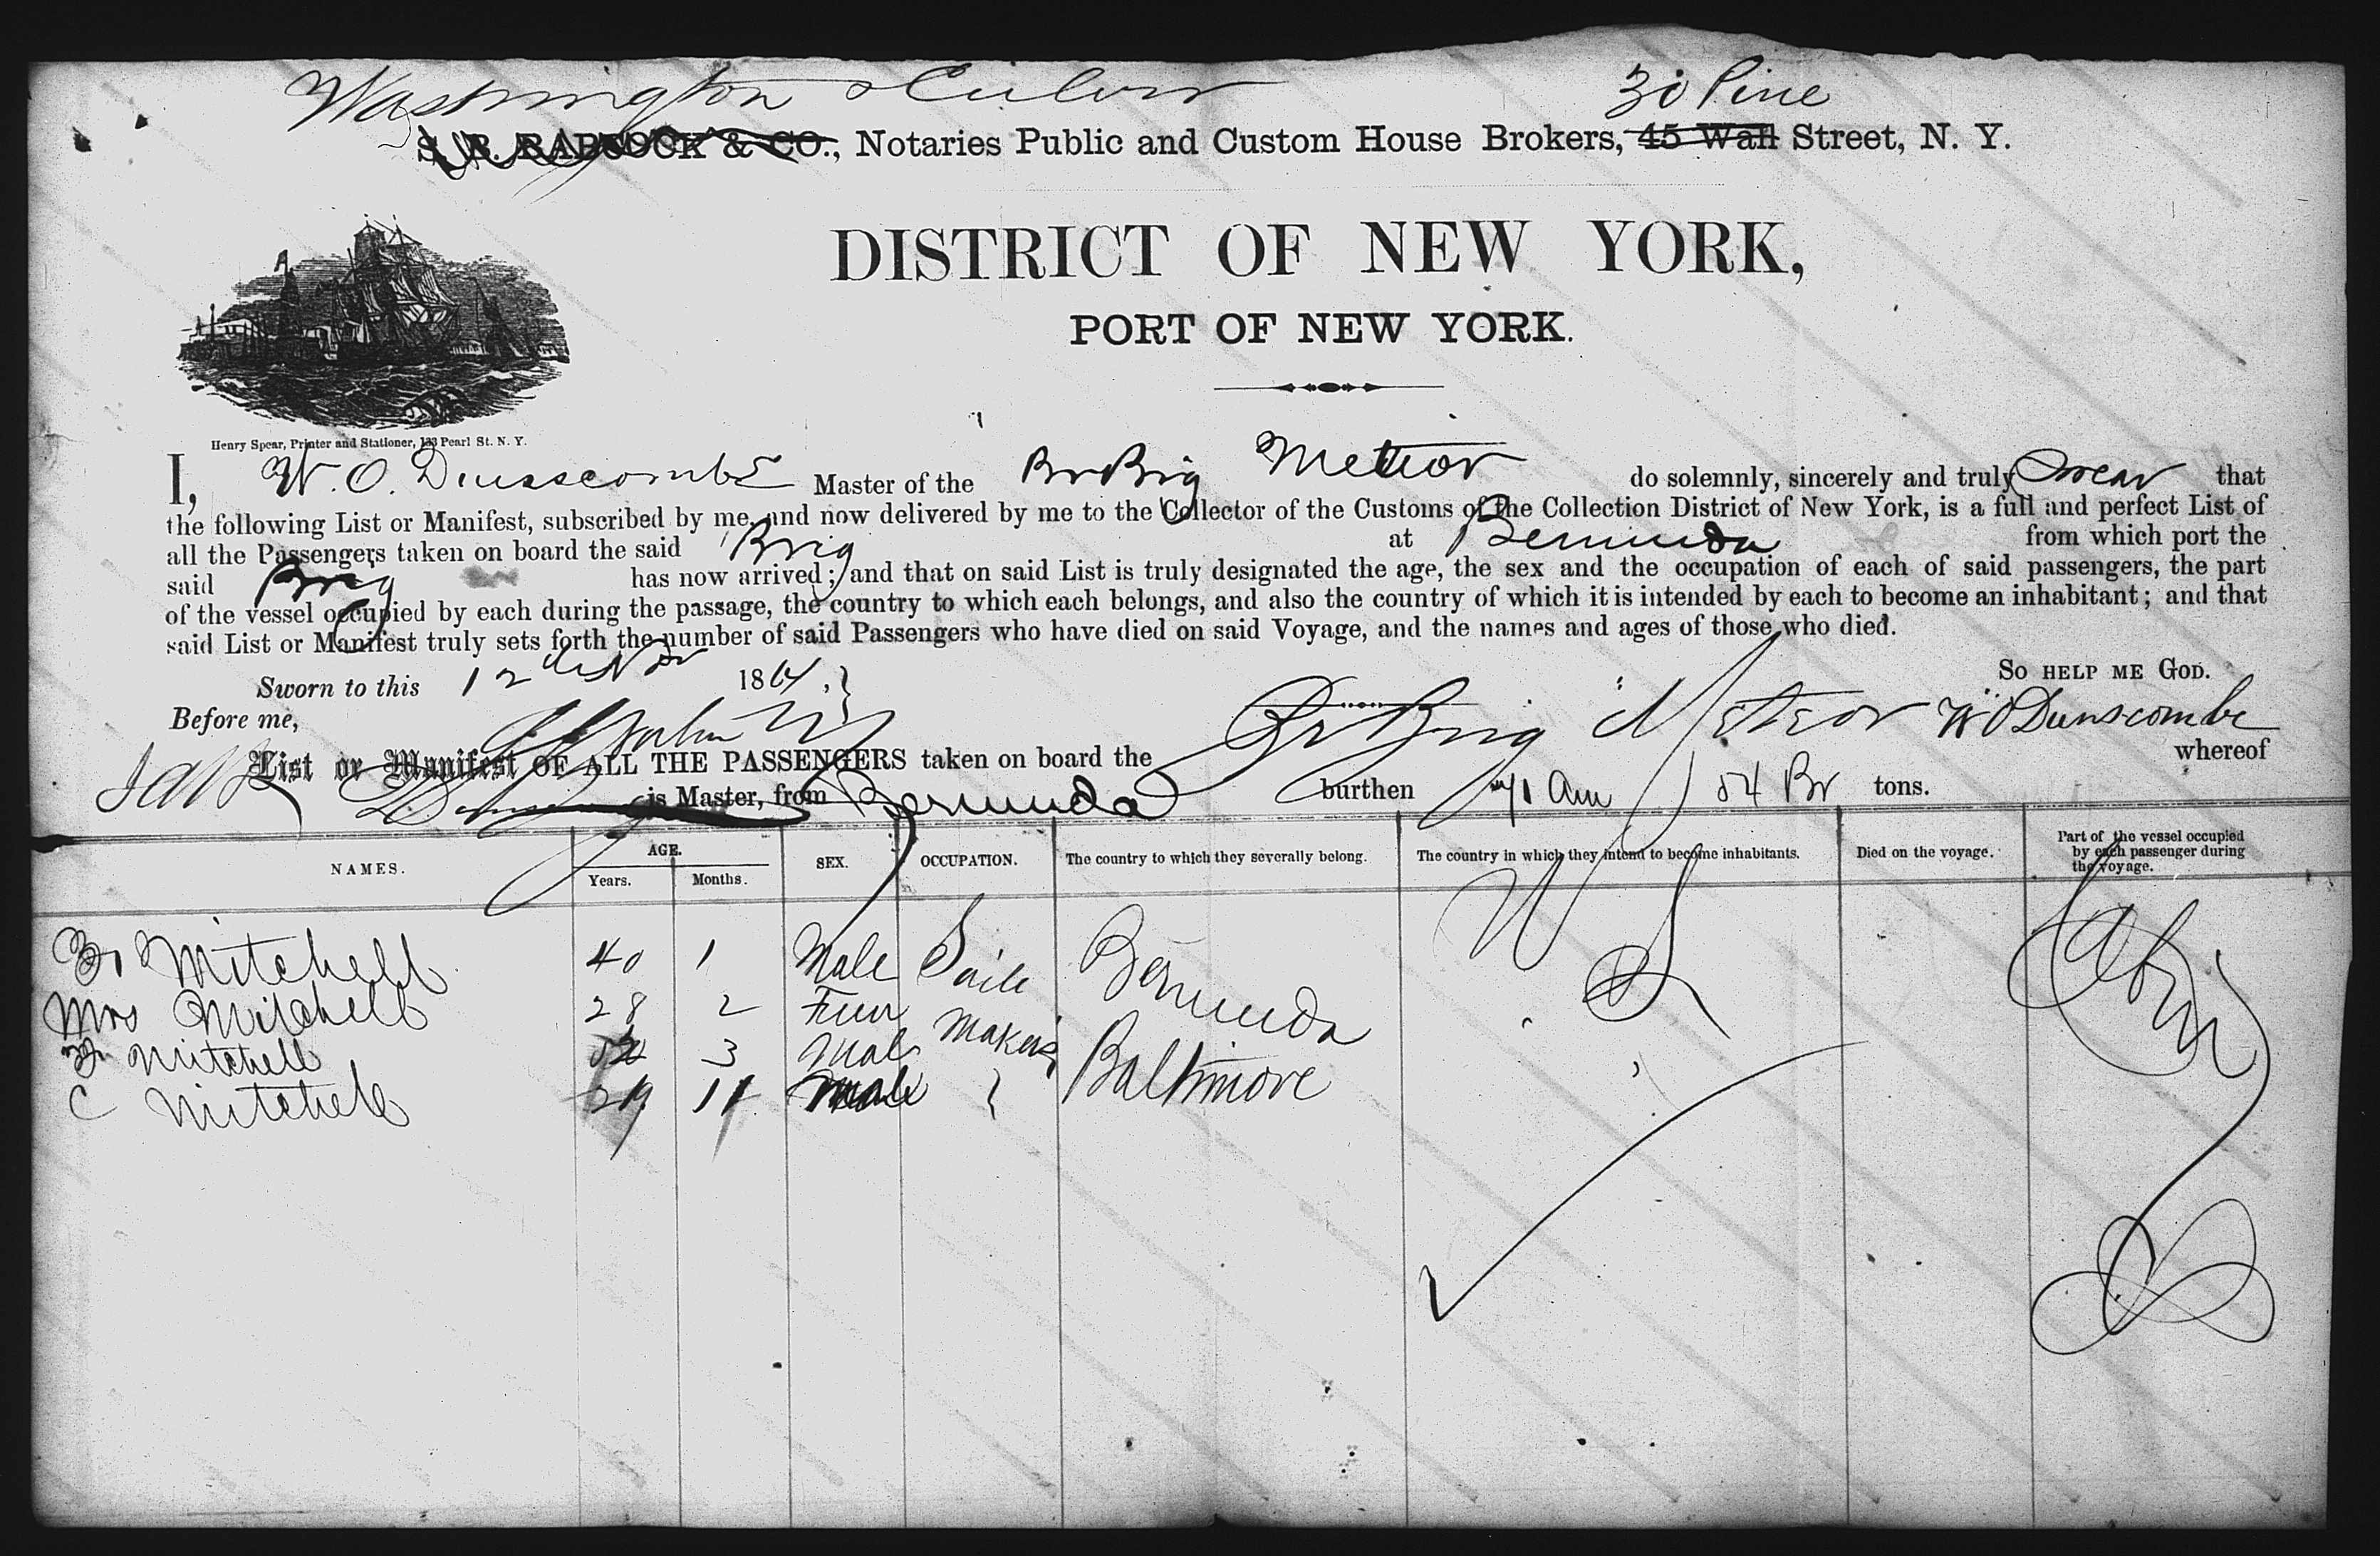 Washington 30 Pine
S. B. BABCOCK & CO., Notaries Public and Custom House Brokers, 45 Wall Street, N. Y.
DISTRICT OF NEW YORK,
PORT OF NEW YORK.
Henry Spear, Printer and Stationer, 133 Pearl St. N. Y.
I, W. O. Dunscombe Master of the Br Brig Meteor do solemnly, sincerely and truly swear that
the following List or Manifest, subscribed by me, and now delivered by me to the Collector of the Customs of the Collection District of New York, is a full and perfect List of
all the Passengers taken on board the said Brig at Bermuda from which port the
said Brig has now arrived; and that on said List is truly designated the age, the sex and the occupation of each of said passengers, the part
of the vessel occupied by each during the passage, the country to which each belongs, and also the country of which it is intended by each to become an inhabitant; and that
said List or Manifest truly sets forth the number of said Passengers who have died on said Voyage, and the names and ages of those who died.
SO HELP ME GOD.
Sworn to this 12 1864
Before me, W O Dunscombe
List or Manifest OF ALL THE PASSENGERS taken on board the Br Brig Meteor whereof
is Master, from Bermuda burthen 71 Am 54 Br tons.
NAMES. AGE. Years. Months. SEX. OCCUPATION. The country to which they severally belong. The country in which they intend to become inhabitants. Died on the voyage. Part of the vessel occupied by each passenger during the voyage.
Mitchell 40 1 Male Sail Bermuda U S Cabin
Mrs Mitchell 28 2 Fem Makers
Mitchell 3 Male
C Mitchell 11 Male Baltimore